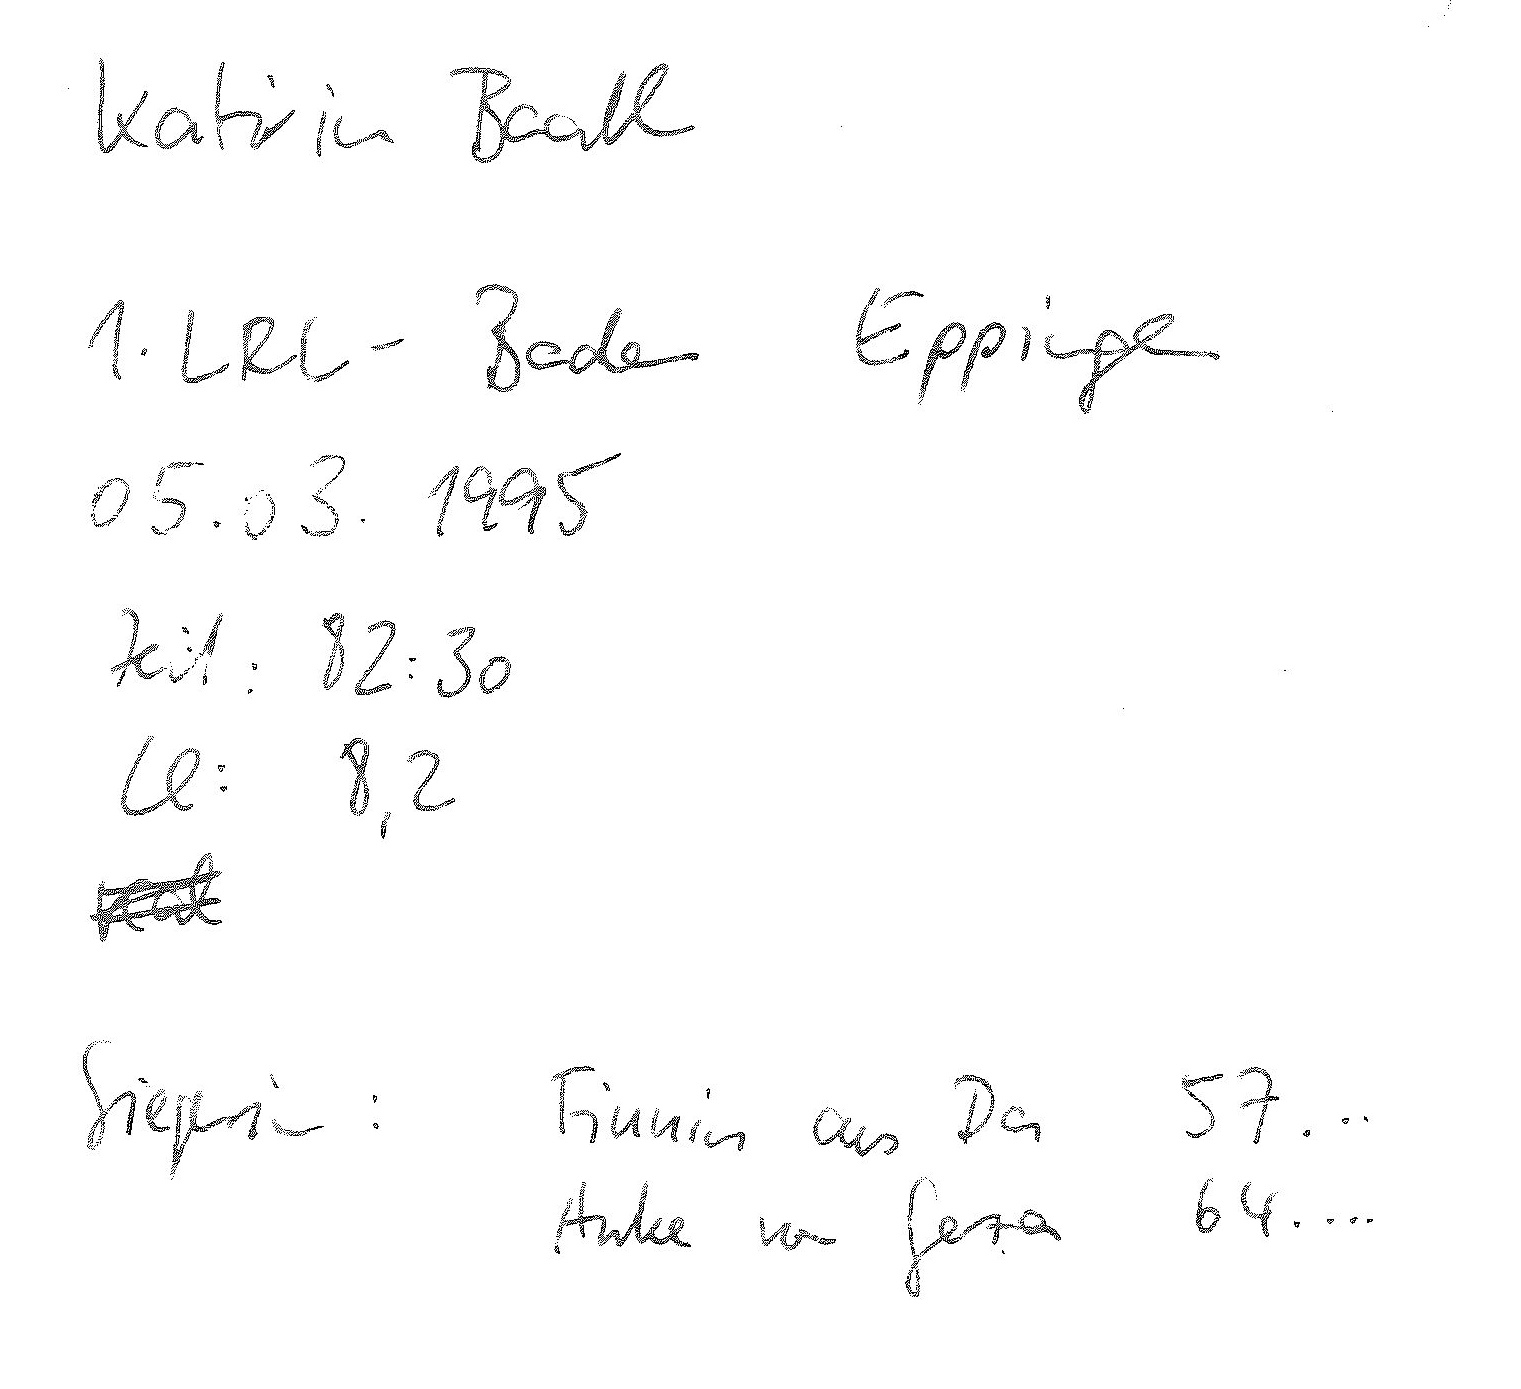 Katrin
1. LRL - Baden Eppingen
05.03. 1995
Zeit: 82:30
8,2
Siegerin: Finnin aus Da 57...
Anke von Gesa 64....